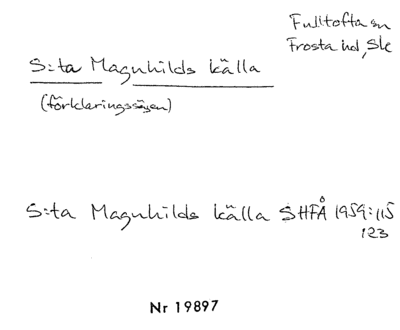 Fulltofta sn
Frosta hd, Sk
S:ta Magnhilds källa
(förklaringssägen)
S:ta Magnhilds källa SHFÅ 1959:115
123
Nr 19897